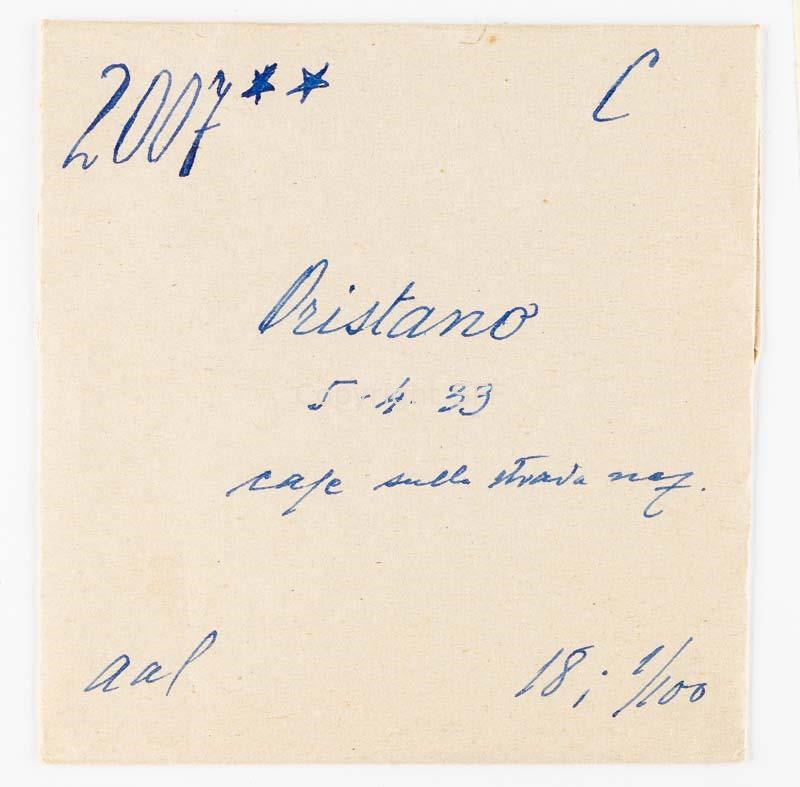 2007** C
Oristano
5-4-33
case sulla strada naz.
aal 18; 1/100